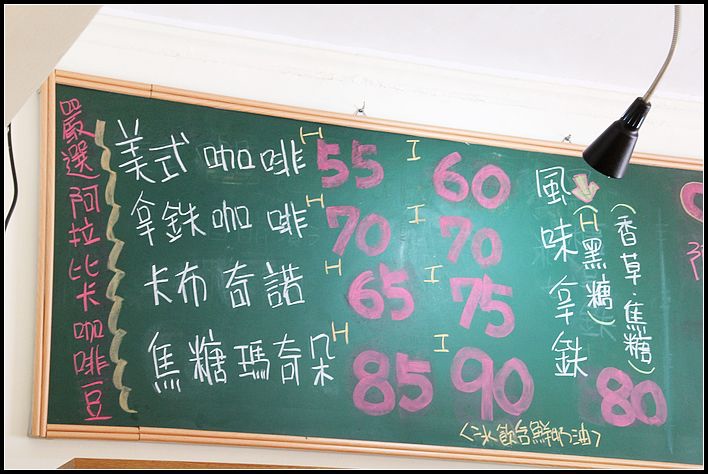 嚴選阿拉比卡咖啡豆
美式咖啡 H 55 I 60
拿鉄咖啡 H 70 I 70
卡布奇諾 H 65 I 75
焦糖瑪奇朵 H 85 I 90
<冰飲含鮮奶油>
風味拿鉄 80
(H黑糖)
(香草·焦糖)